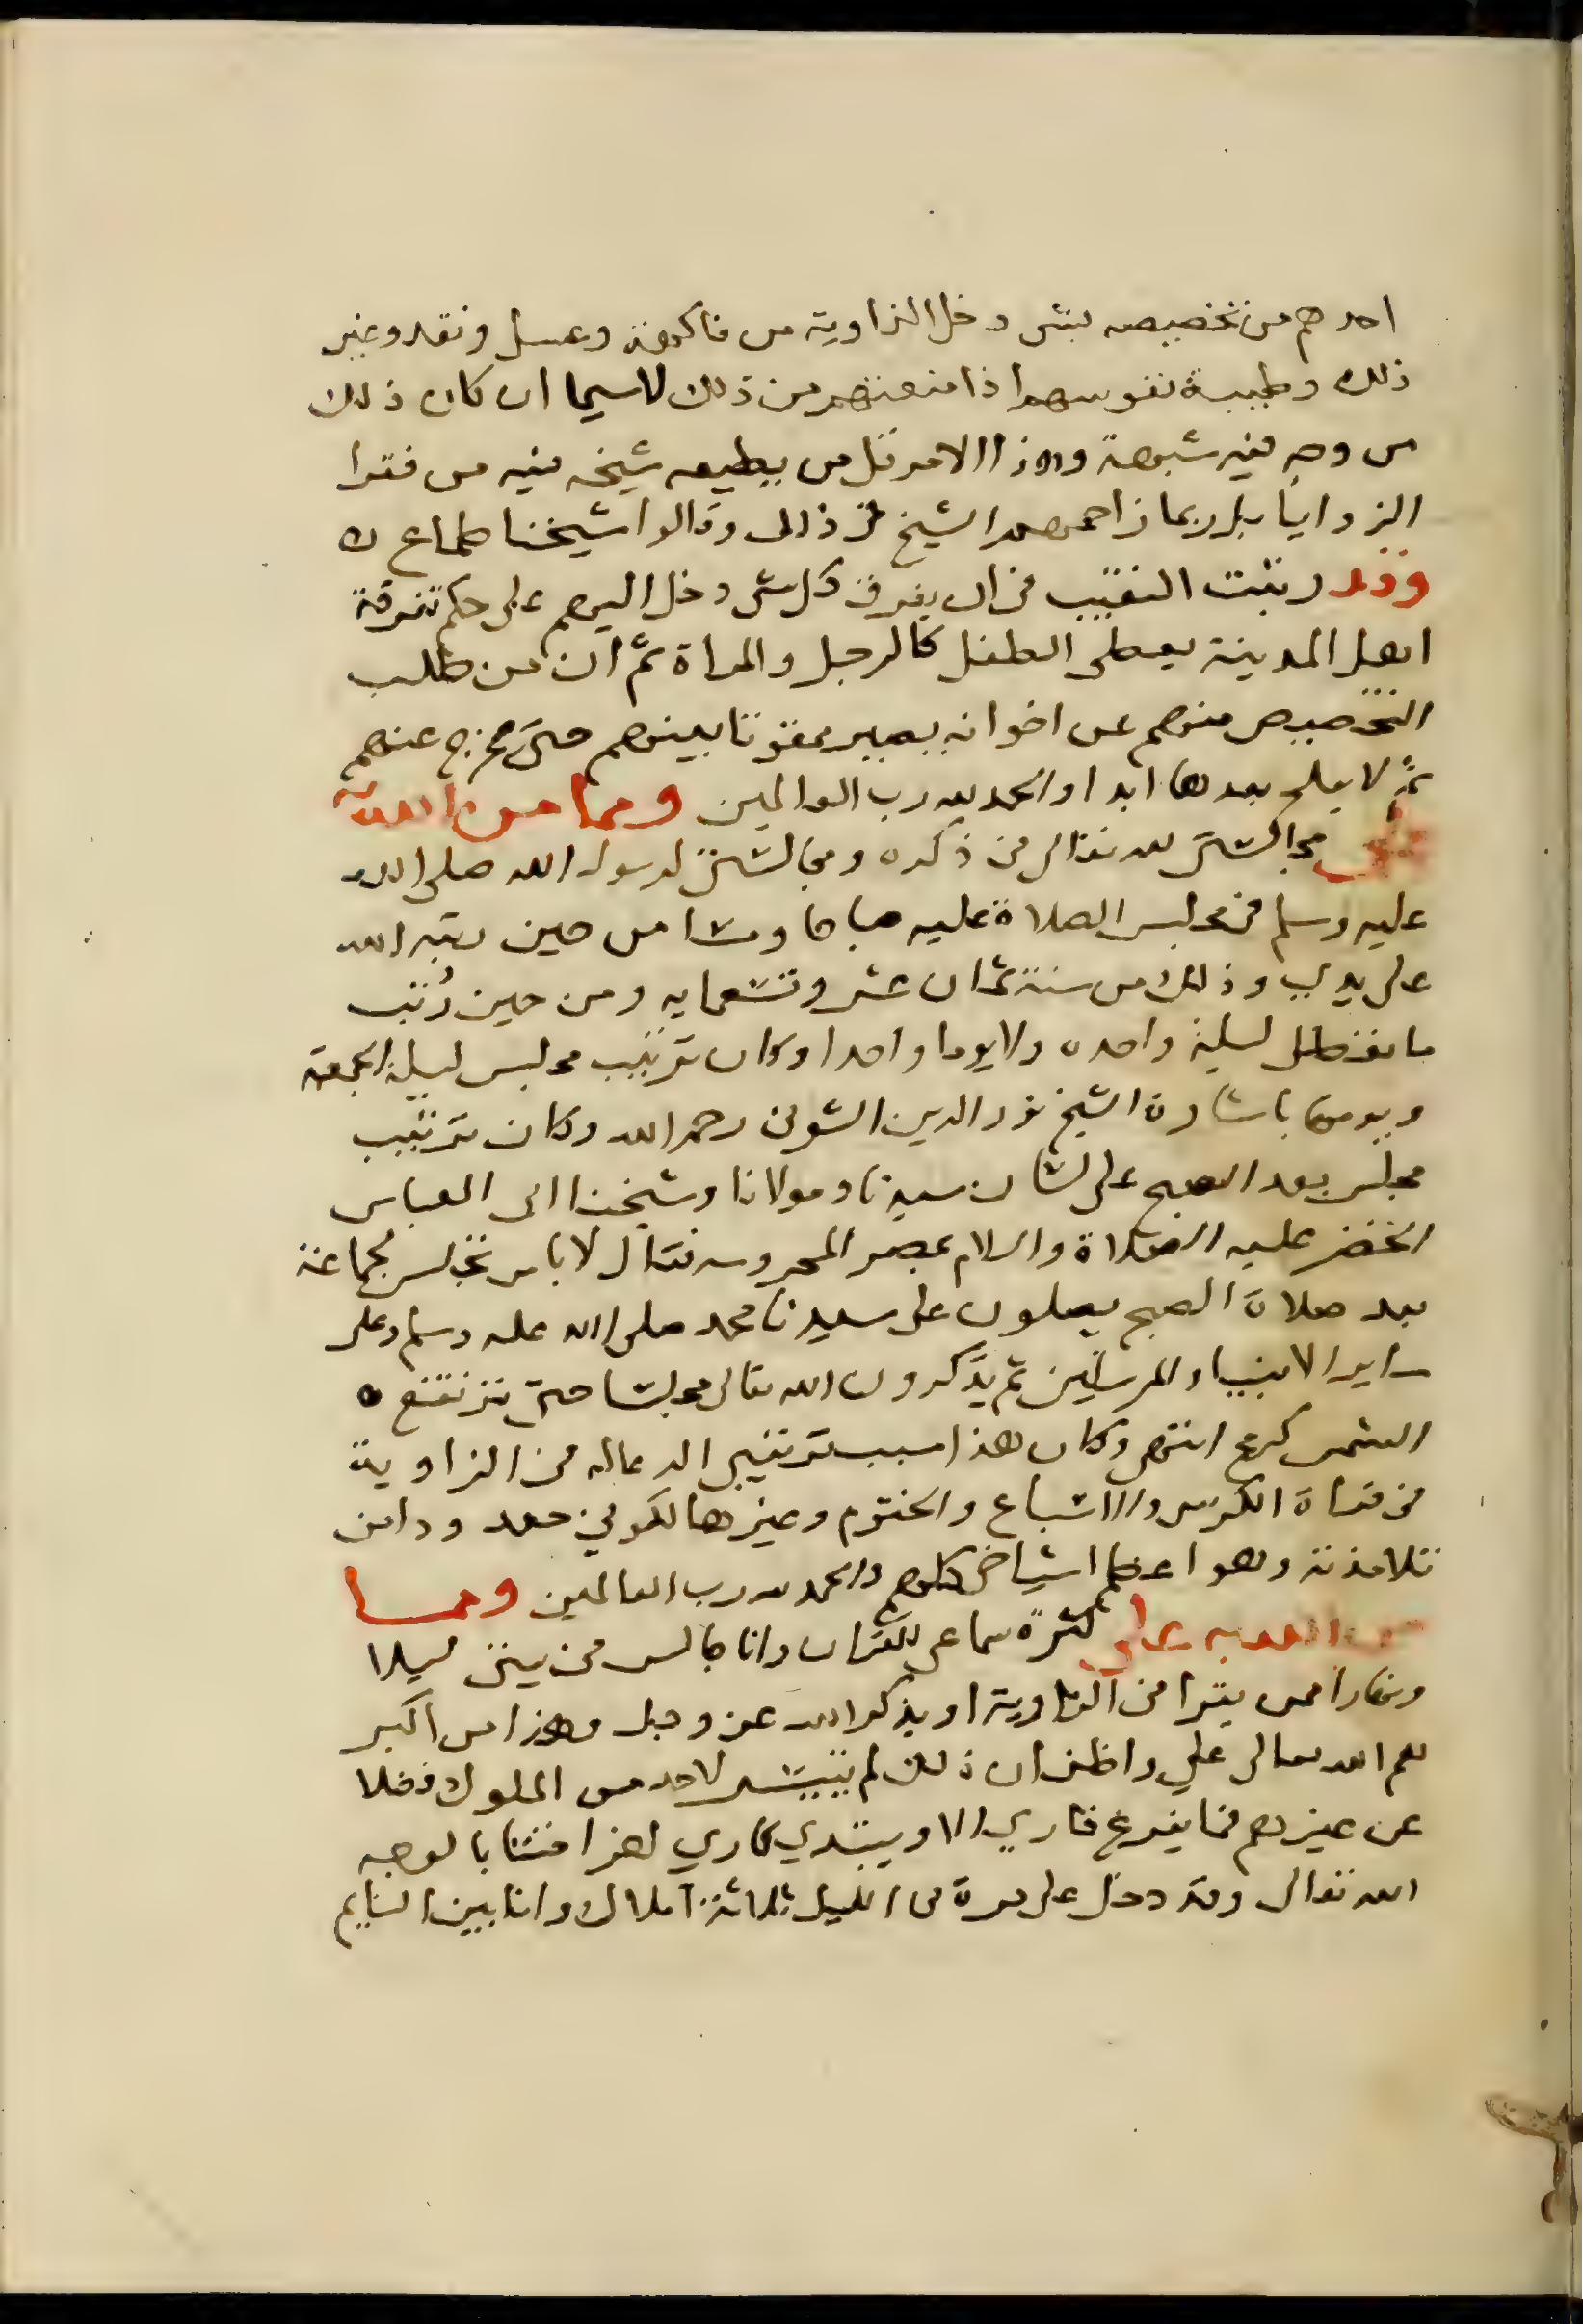 احدهم من تخصيصه بشي دخل الزاوية من فاكهة وعسل ونقد وغير
ذلك وطيبة نفوسهم اذا منعتهم من ذلك لاسيما ان كان ذلك
من وجه فيه شبهة وهذا الامر قل من يطيعه شيخه فيه من فقرا
الزوايا بل ربما زاحمهم الشيخ في ذلك وقالوا شيخنا طماع
وقد رتبت النقيب في ان يفرق كل شي دخل اليهم على حكم تفرقة
اهل المدينة يعطى الطفل كالرجل والمراة ثم ان من طلب
التخصيص منهم عن اخوانه يصير ممقوتا بينهم حتى يخرج عنهم
ثم لا يفلح بعدها ابدا والحمد لله رب العالمين ومما من الله به
علي مجالستي لله تعالى في ذكره ومجالستي لرسول الله صلى الله
عليه وسلم في مجلس الصلاة عليه صباحا ومسا من حين رتبه الله
على يدي وذلك من سنة ثمان عشر وتسعمايه ومن حين رُتب
ما تعطل ليلة واحده ولا يوما واحدا وكان ترتيب مجلس ليلة الجمعة
ويومها باشارة الشيخ نور الدين الشوني رحمه الله وكان ترتيب
مجلس بعد الصبح على لسان سيدنا ومولانا وشيخنا ابي العباس
الخضر عليه الصلاة والسلام بمصر المحروسه فقال لا باس تجالس جماعة
بعد صلاة الصبح يصلون على سيدنا محمد صلى الله عليه وسلم وعلى
ساير الانبيا والمرسلين ثم يذكرون الله تعالى مجلسا حتى ترتفع
الشمس كرمح انتهى وكان هذا سبب ترتيبي الدعا له في الزاوية
في قراة الكرسي والاشباع والختوم وغيرها لكوني معدودا من
تلامذته وهو اعظم اشياخي كلهم والحمد لله رب العالمين ومما
من الله به علي كثرة سماعي للقران وانا جالس في بيتي ليلا
ونهارا ممن يقرا في الزاوية او يذكر الله عز وجل وهذا من اكبر
نعم الله تعالى علي واظن ان ذلك لم يتيسر لاحد من الملوك فضلا
عن غيرهم فما يفرغ قاري الا ويبتدي قاري اخر احتسابا لوجه
الله تعالى وقد دخل علي مرة في الليل ثلاثة املاك وانا بين النايم